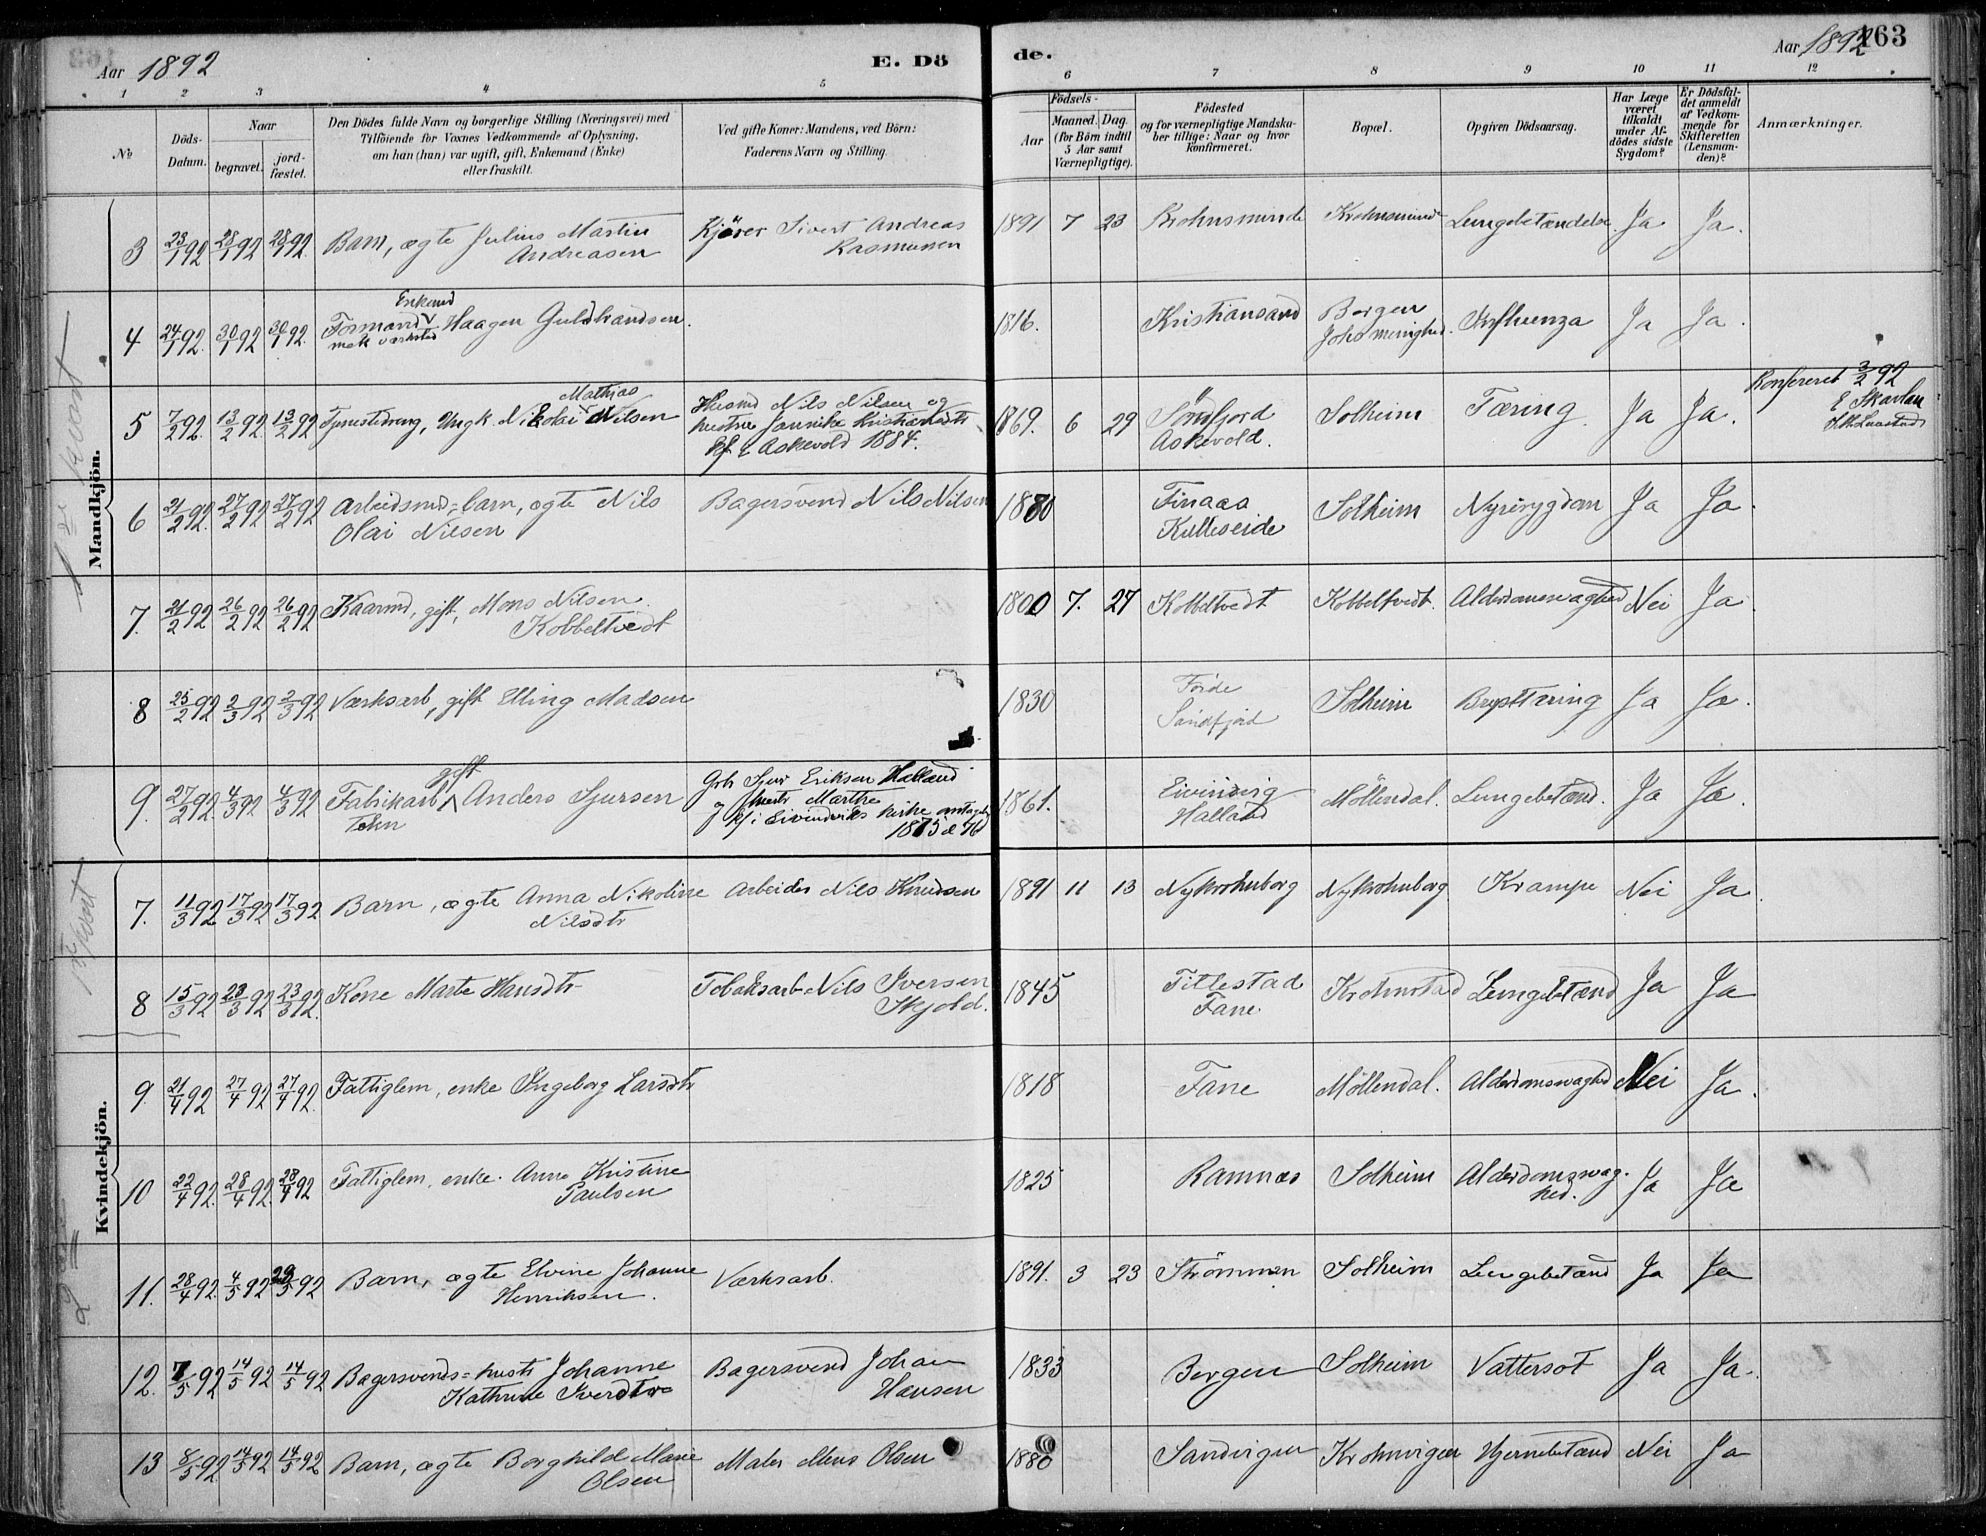 Aar 1892
E. Dö
de.
Aar 1892
163
1 2 3 4 5 6 7 8 9 10 11 12
No
Döds-Datum.
Naar
begravet.
jord-fæstet.
Den Dödes fulde Navn og borgerlige Stilling (Næringsvei) med
Tilföiende for Voxnes Vedkommende af Oplysning,
om han (hun) var ugift, gift, Enkemand (Enke)
eller fraskilt.
Ved gifte Koner: Mandens, ved Börn:
Faderens Navn og Stilling.
Födsels-
Aar
Maaned. Dag.
(for Börn indtil
5 Aar samt
Værnepligtige).
Födested
og for værnepligtige Mandska-
ber tillige: Naar og hvor
konfirmeret.
Bopæl.
Opgiven Dödsaarsag.
Har Læge
været
tilkaldt
under Af-
dödes sidste
Sygdom?
Er Dödsfal-
det anmeldt
af Vedkom-
mende for
Skifteretten
(Lensman-
den)?
Anmærkninger.
Mandkjön.
3 23/1 92 28/1 92 28/1 92 Barn, ægte Julius Martin Kjörer Sivert Andreas 1891 7 23 Krohnsminde Krohnsminde Lungebetændelse Ja Ja.
Andreasen Rasmussen
Enkemd
4 24/1 92. 30/1 92 30/1 92. Formand Haagen Guldbrandsen. 1816. Kristiansand Bergen Influenza Ja Ja.
mek værksted Johs menighed.
Mathias
Konfereret 3/2 92
5 7/2 92. 13/2 92 13/2 92 Tjenestedreng, Ungk. Nikolai Nilsen Husmd Nils Nilsen og 1869. 6 29 Söndfjord Solheim Tæring Ja Ja. E Skavlan
hustru Jannike Kristiansdtr Askevold.
kf i Askevold 1884.
6 21/2 92. 27/2 92 27/2 92 Arbeidsmd=barn, ægte Nils Bagersvend Nils Nilsen 1880 Finaas Solheim Nyresygdom Ja Ja
Olai Nilsen Kulleseide
7. 21/2 92 26/2 92 26/2 92 Kaarmd, gift, Mons Nilsen 1800 7. 27 Kobbeltvedt Kobbeltvedt. Alderdomssvaghed Nei Ja
Kobbeltvedt
8 25/2 92. 2/3 92 2/3 92 Værksarb, gift Elling Madsen 1830 Förde Solheim Brysttæring Ja Ja.
Söndfjord
gift
9. 27/2 92. 4/3 92 4/3 92 Fabrikarb Anders Sjursen Gbr Sjur Eriksen Halland 1861. Eivindvig Möllendal. Lungebetænd. Ja Ja.
og hustr Marthe Halland
kf i Eivindviks kirke antagelig
1875 a 76
Kvindekjön.
7. 11/3 92 17/3 92 17/3 92 Barn, ægte Anna Nikoline Arbeider Nils Knudsen 1891 11 13 Nykrohnborg Nykrohnborg Krampe Nei Ja
Nilsdtr
8 15/3 92 23/3 92 23/3 92. Kone Marte Hansdtr Tobaksarb Nils Iversen 1845 Titlestad Krohnstad Lungebetænd Ja Ja
Skjold. Fane.
9. 21/4 92 27/4 92 27/4 92. Fattiglem, enke Ingeborg Larsdtr 1818 Fane Möllendal. Alderdomssvaghed Nei Ja.
10 22/4 92. 28/4 92. 28/4 92 Fattiglem, enke. Anne Kristine 1825 Ramnæs Solheim Alderdomssvag-hed. Ja Ja
Paulsen
11. 28/4 92. 4/5 92 29/5 92 Barn, ægte Elvine Johanne Værksarb. 1891. 3 23 Strömmen Solheim Lungebetænd Ja Ja
Henriksen.
12. 7/5 92 14/5 92 14/5 92 Bagersvends=hustr Johanne Bagersvend Johan 1833 Bergen Solheim Vattersot Ja Ja.
Kathrine Iversdtr Hansen
13 8/5 92 14/5 92 14/5 92 Barn, ægte Borghild Marie Maler Mons Olsen 1880 Sandvigen Krohnvigen Hjernebetænd Nei Ja
Olsen